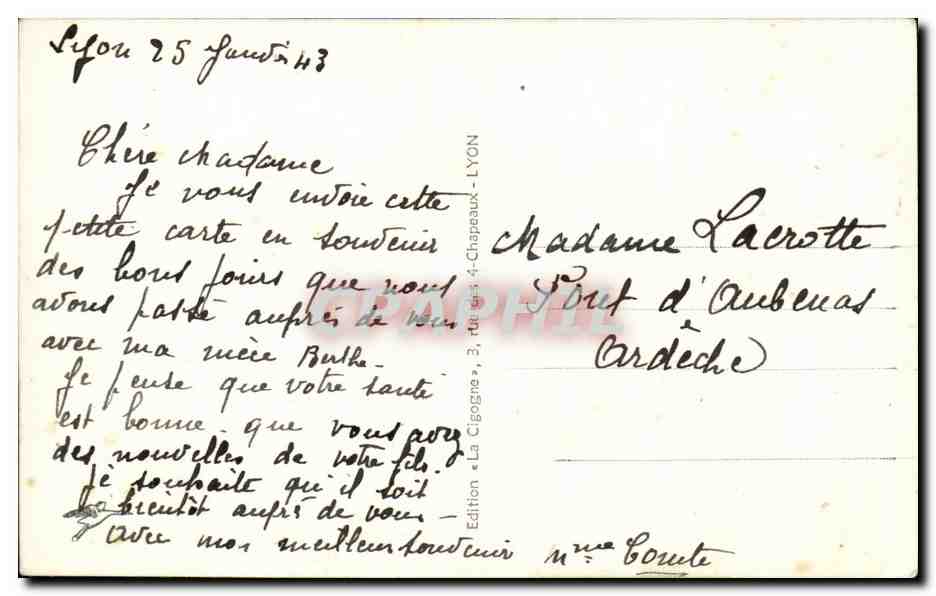 Lyon 25 Janvier 43
Chère Madame
Je vous envoie cette
petite carte en souvenir
des bons jours que nous
avons passé auprès de vous
avec ma nièce Berthe -
Je pense que votre santé
est bonne. que vous avez
des nouvelles de votre fils.
Je souhaite qu'il soit
bientôt auprès de vous -
Avec mon meilleur souvenir
Mme Comte
Edition «La Cigogne», 3, rue des 4-Chapeaux - LYON
Madame Lacrotte
Pont d'Aubenas
Ardèche
CPAPHIL